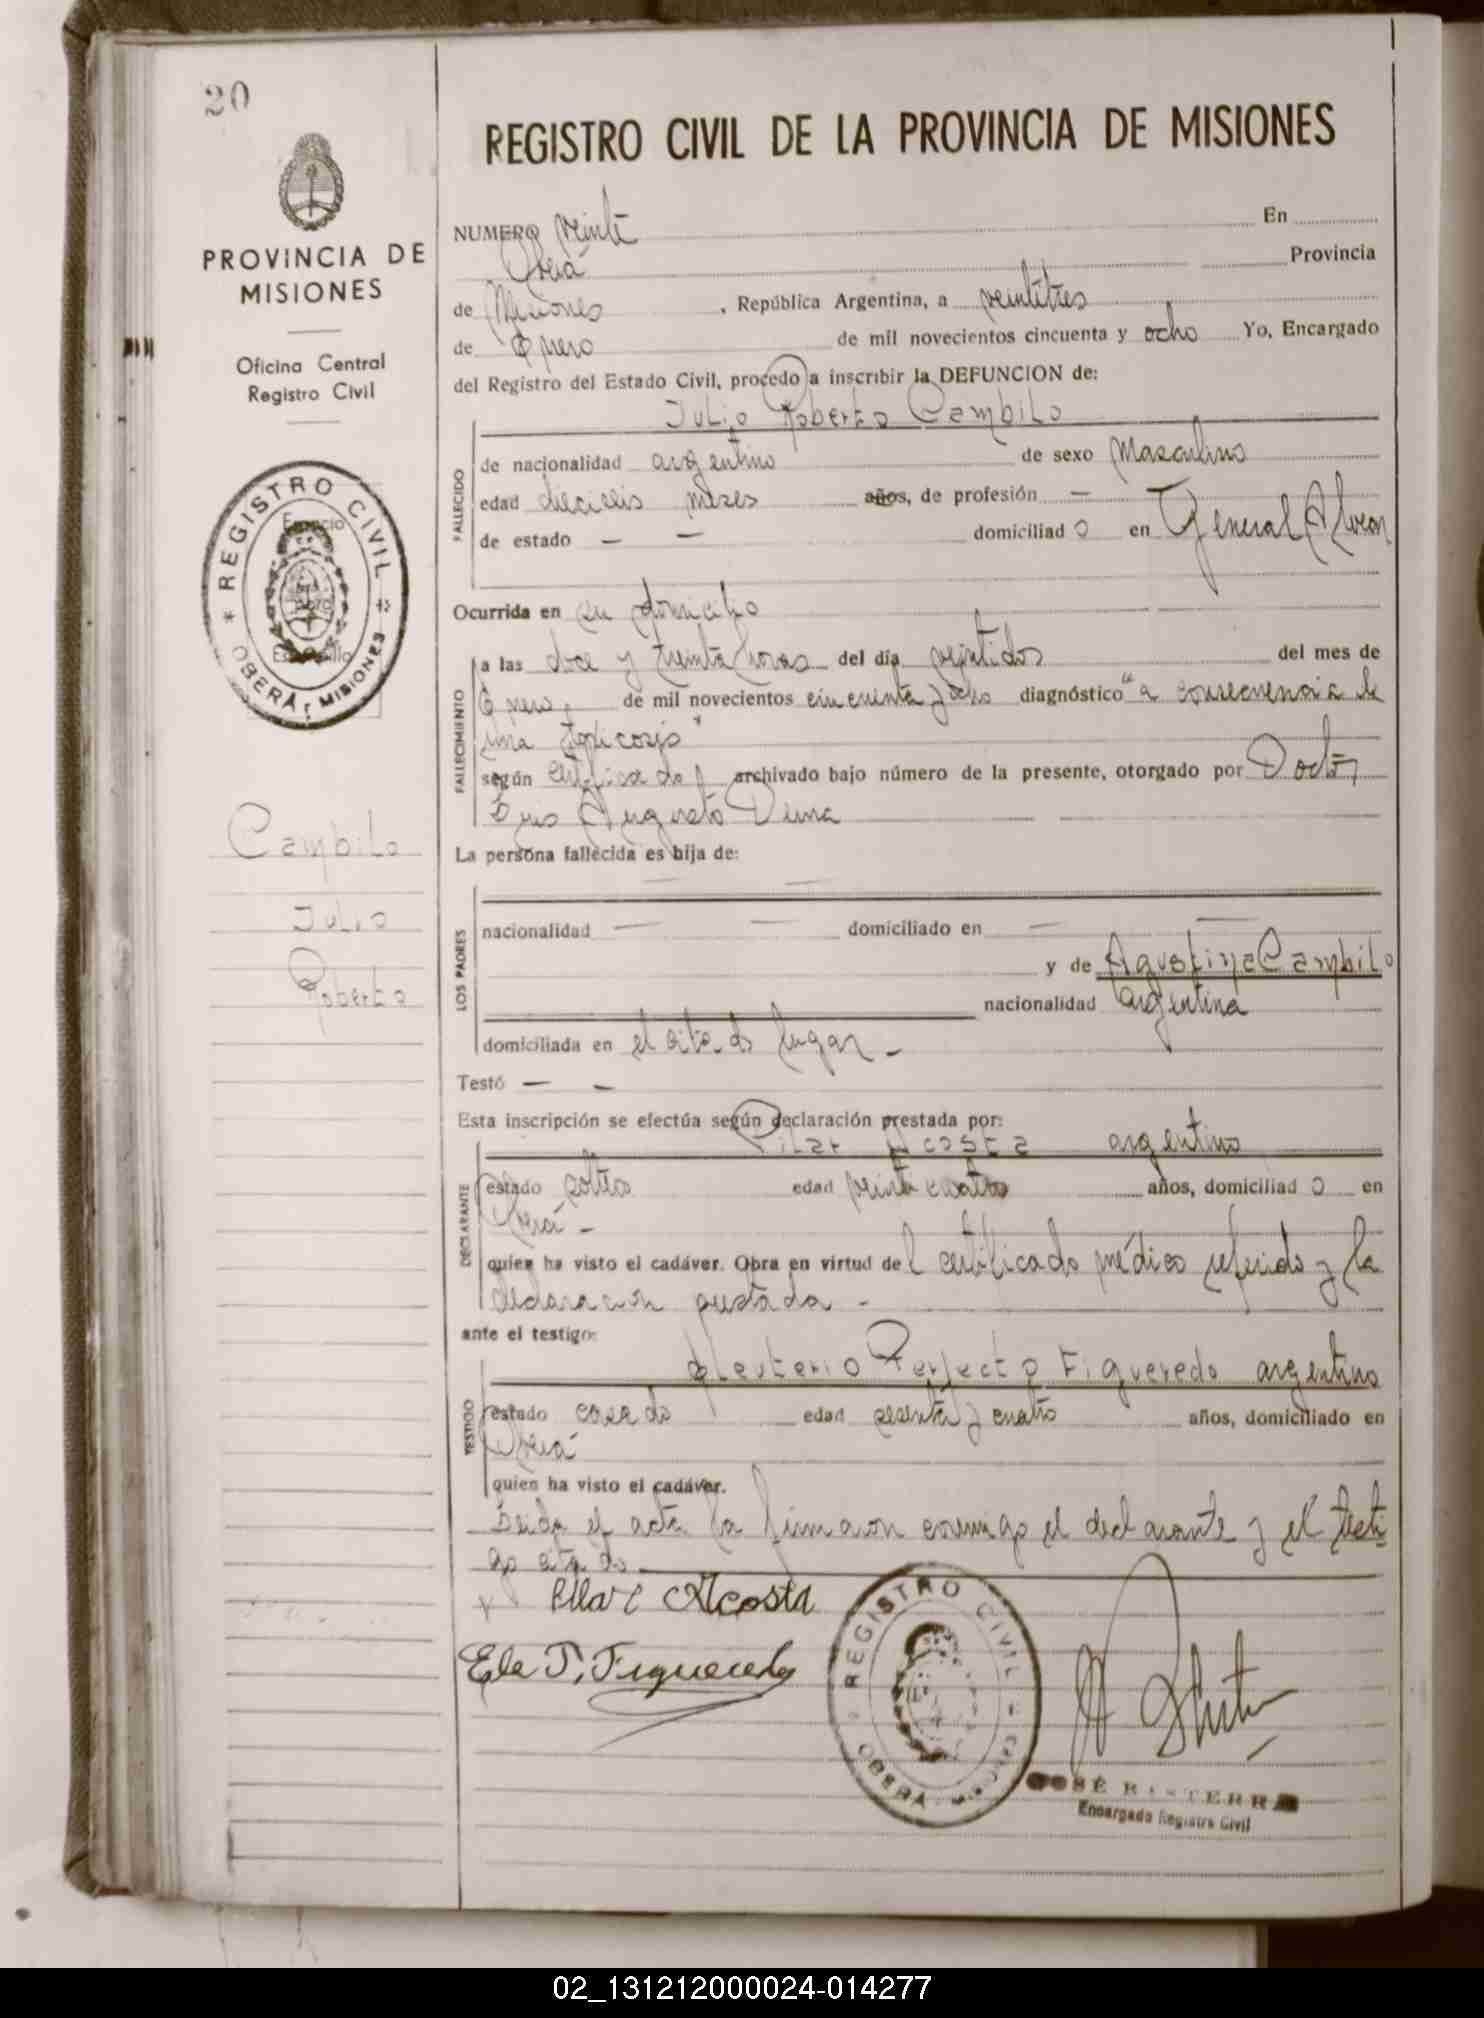 20
PROVINCIA DE
MISIONES
Oficina Central
Registro Civil
REGISTRO CIVIL
OBERÁ, MISIONES
Cambilo
Julio
Roberto
REGISTRO CIVIL DE LA PROVINCIA DE MISIONES
NUMERO veinte En
Oberá Provincia
de Misiones , República Argentina, a veintitres
de Enero de mil novecientos cincuenta y ocho Yo, Encargado
del Registro del Estado Civil, procedo a inscribir la DEFUNCION de:
Julio Roberto Cambilo
FALLECIDO
de nacionalidad argentino de sexo Masculino
edad dieciseis meses años, de profesión —
de estado — — domiciliad o en General Alvear
Ocurrida en su domicilio
FALLECIMIENTO
a las doce y treinta horas del día veintidos del mes de
Enero, de mil novecientos cincuenta y ocho diagnóstico "a consecuencia de
una "
según certificado archivado bajo número de la presente, otorgado por Doctor
Luis Augusto
La persona fallecida es hija de:
— —
LOS PADRES
nacionalidad — — domiciliado en — —
y de Agustina Cambilo
nacionalidad argentina
domiciliada en el citado lugar –
Testó — –
Esta inscripción se efectúa según declaración prestada por:
Pilar Acosta argentino
DECLARANTE
estado soltero edad treinta cuatro años, domiciliad o en
Oberá –
quien ha visto el cadáver. Obra en virtud del certificado médico referido y la
declaración prestada –
ante el testigo:
Eleuterio Perfecto Figueredo argentino
TESTIGO
estado casado edad sesenta y cuatro años, domiciliado en
Oberá
quien ha visto el cadáver.
Leida el acta la firmaron conmigo el declarante y el testi-
go citado
Pilar Acosta
Ele P. Figueredo
REGISTRO CIVIL
OBERÁ - MISIONES
JOSÉ
Encargado Registro Civil
02_131212000024-014277